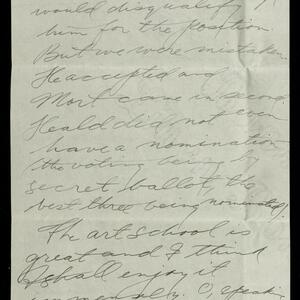 would disqualify
him for the position.
But we were mistaken.
He accepted and
Mort came in second.
Heald did not even
have a nomination
(the voting being by
secret ballot, the
best three being nominated).
The art school is
great and I think
I shall enjoy it
immensely. O, speak